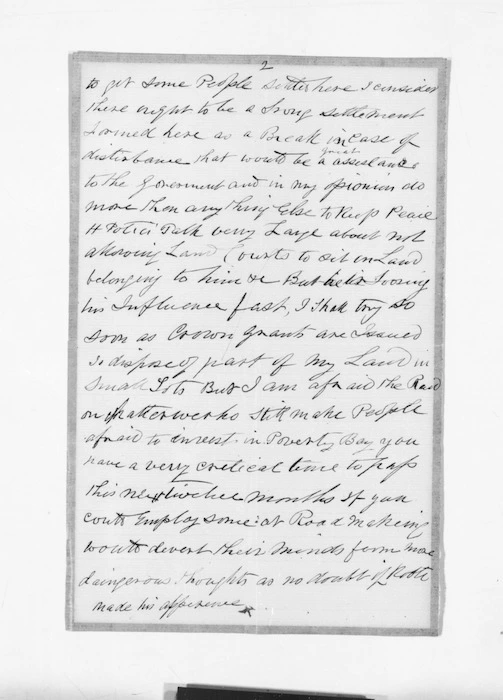 2
to get some People settle here I consider
there ought to be a Srong settlement
formed here as a Break in Case of
disturbance that would be a great assestance
to the Goverment and in my opionin do
more then any thing Else to Keep Peace
H Potiei Talk very Large about not
allowing Land Courts to sit in Land
belonging to him & But he is Loosing
his Influence fast, I Shall try so
soon as Crown grants are Issued
to dispose of part of my Land in
Small Lots But I am afraid the Raid
on Whatterwerho still make People
afraid to invest in Poverty Bay you
have a very cretical time to pass
this next twelve months If you
could Employ some at Road making
would devert their minds from more
dangerous thoughts as no doubt if Kooti
made his apperence